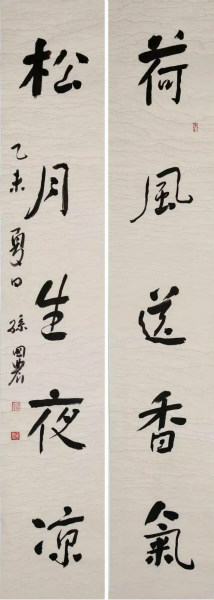 荷風送香氣
松月生夜涼
乙未夏日 孫田農